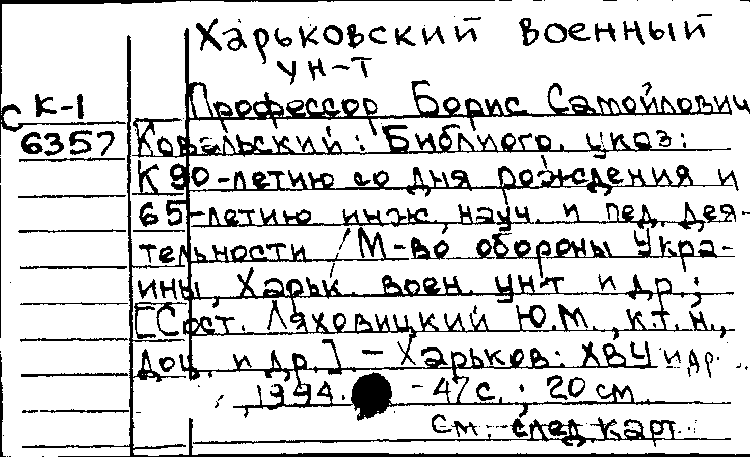 Харьковский военный
ун-т
С К-1
6357
Профессор Борис Самойлович
Ковальский: Библиогр. указ:
К 90-летию со дня рождения и
65-летию инж., науч. и пед. дея-
тельности / М-во обороны Укра-
ины, Харьк. воен. ун-т и др.;
[Сост. Ляховицкий Ю.М., к.т.н.,
доц. и др.] - Харьков: ХВУ и др.
, 1994. - 47 с.; 20 см
См. след. карт.